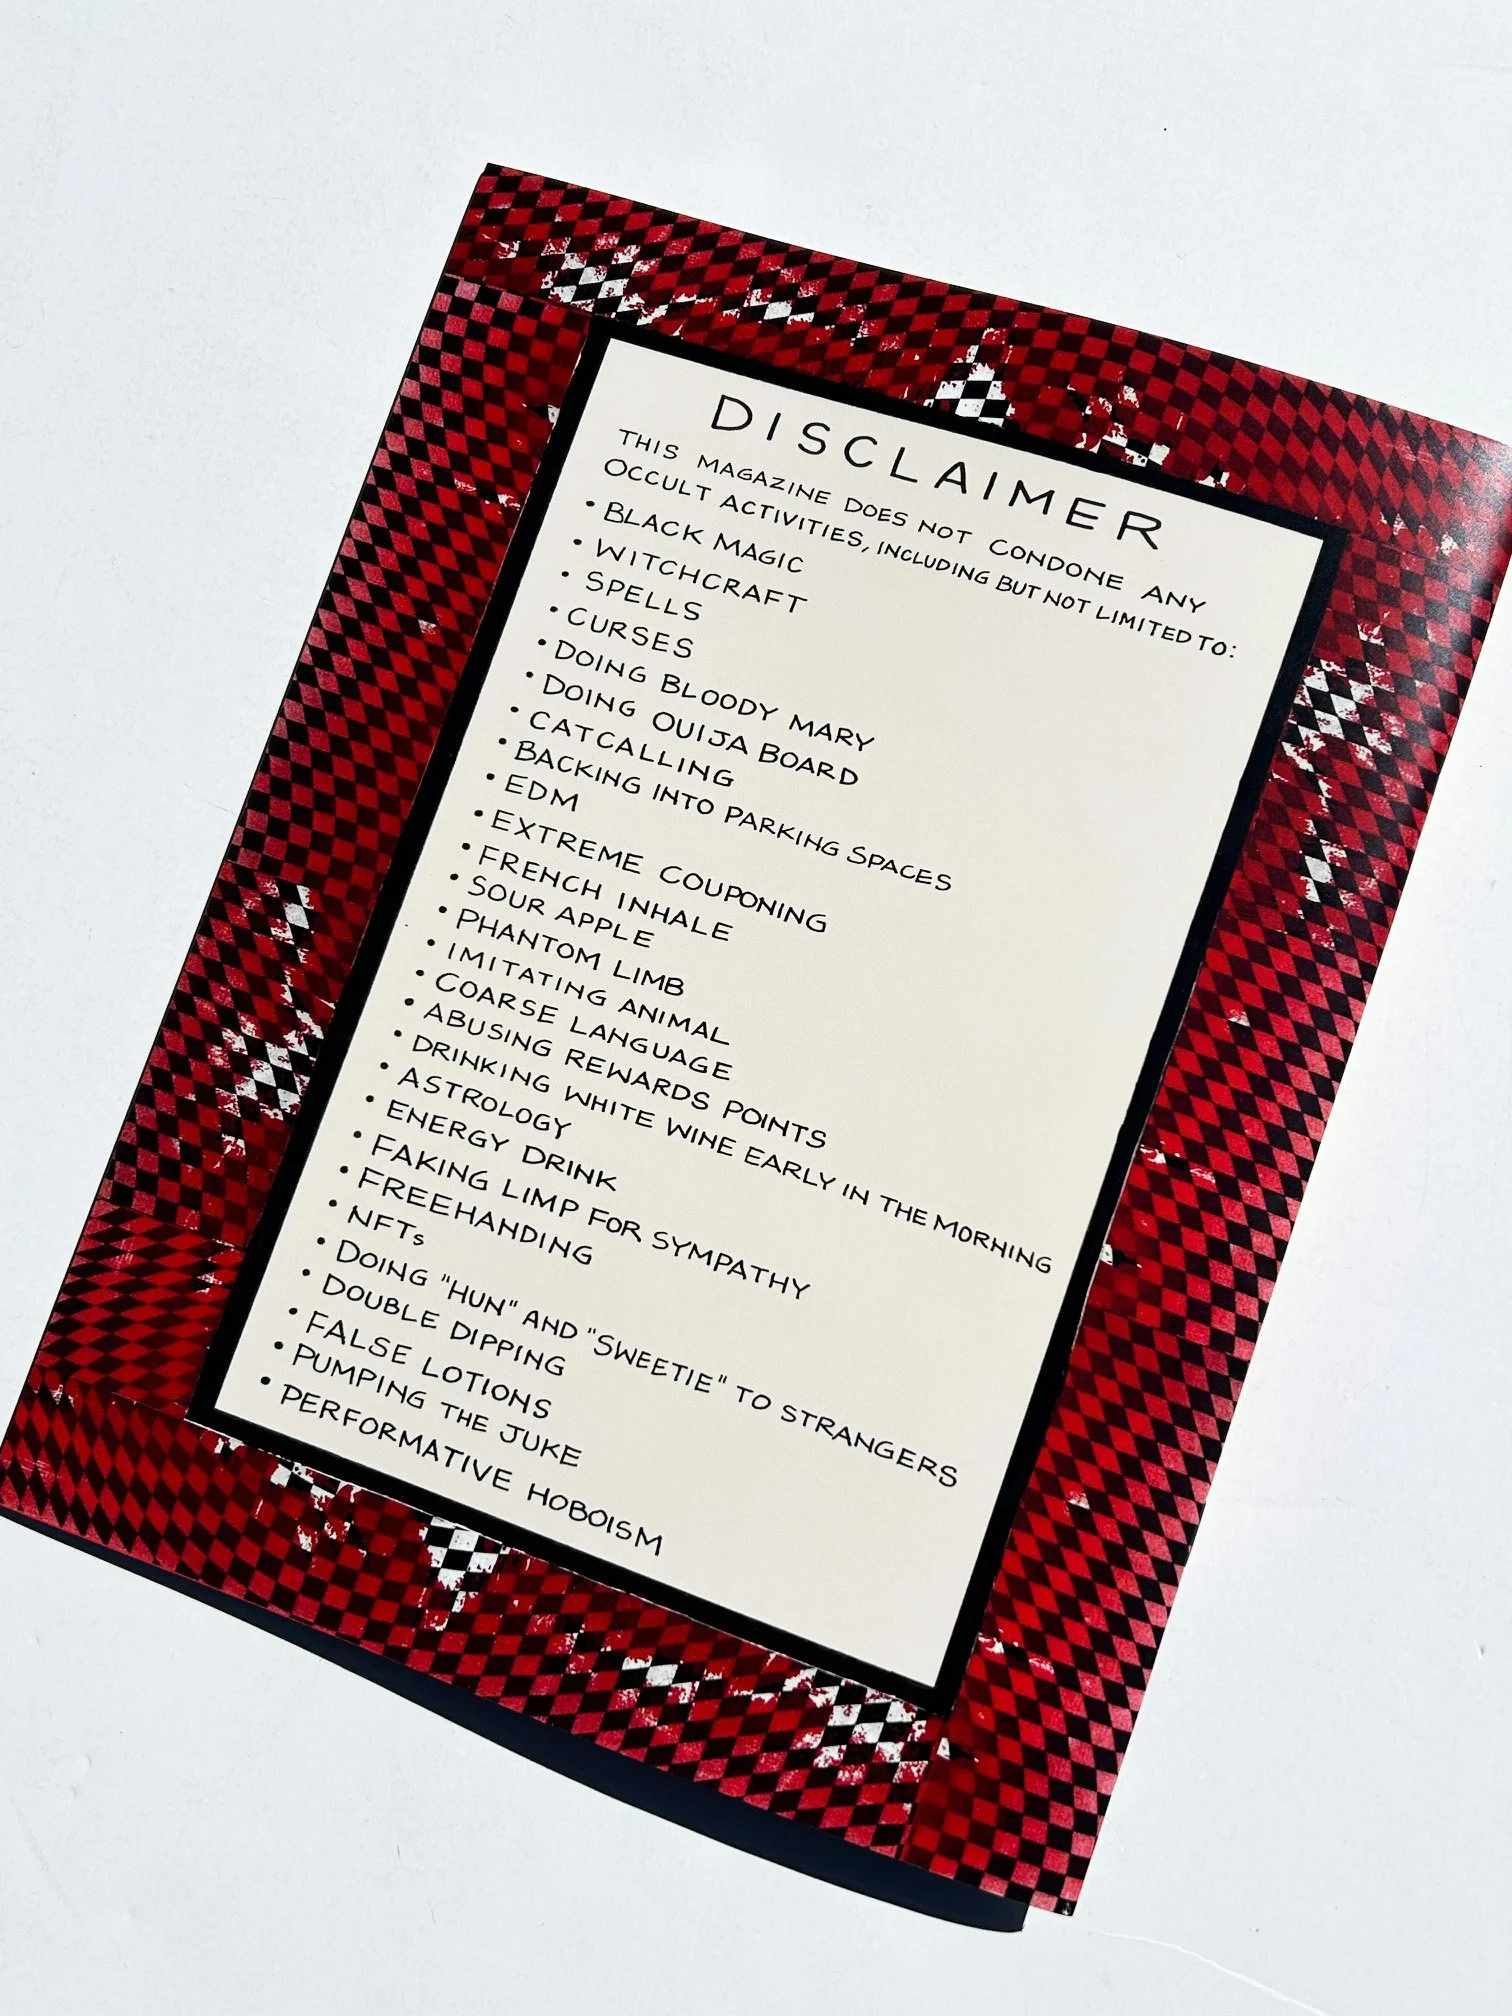 DISCLAIMER
THIS MAGAZINE DOES NOT CONDONE ANY
OCCULT ACTIVITIES, INCLUDING BUT NOT LIMITED TO:
• BLACK MAGIC
• WITCHCRAFT
• SPELLS
• CURSES
• DOING BLOODY MARY
• DOING OUIJA BOARD
• CATCALLING
• BACKING INTO PARKING SPACES
• EDM
• EXTREME COUPONING
• FRENCH INHALE
• SOUR APPLE
• PHANTOM LIMB
• IMITATING ANIMAL
• COARSE LANGUAGE
• ABUSING REWARDS POINTS
• DRINKING WHITE WINE EARLY IN THE MORNING
• ASTROLOGY
• ENERGY DRINK
• FAKING LIMP FOR SYMPATHY
• FREEHANDING
• NFTs
• DOING "HUN" AND "SWEETIE" TO STRANGERS
• DOUBLE DIPPING
• FALSE LOTIONS
• PUMPING THE JUKE
• PERFORMATIVE HOBOISM